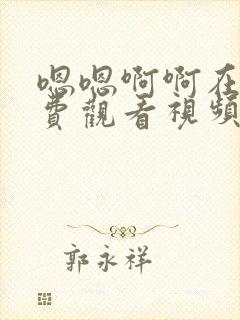 嗯嗯啊啊在
費觀看視頻
郭永祥